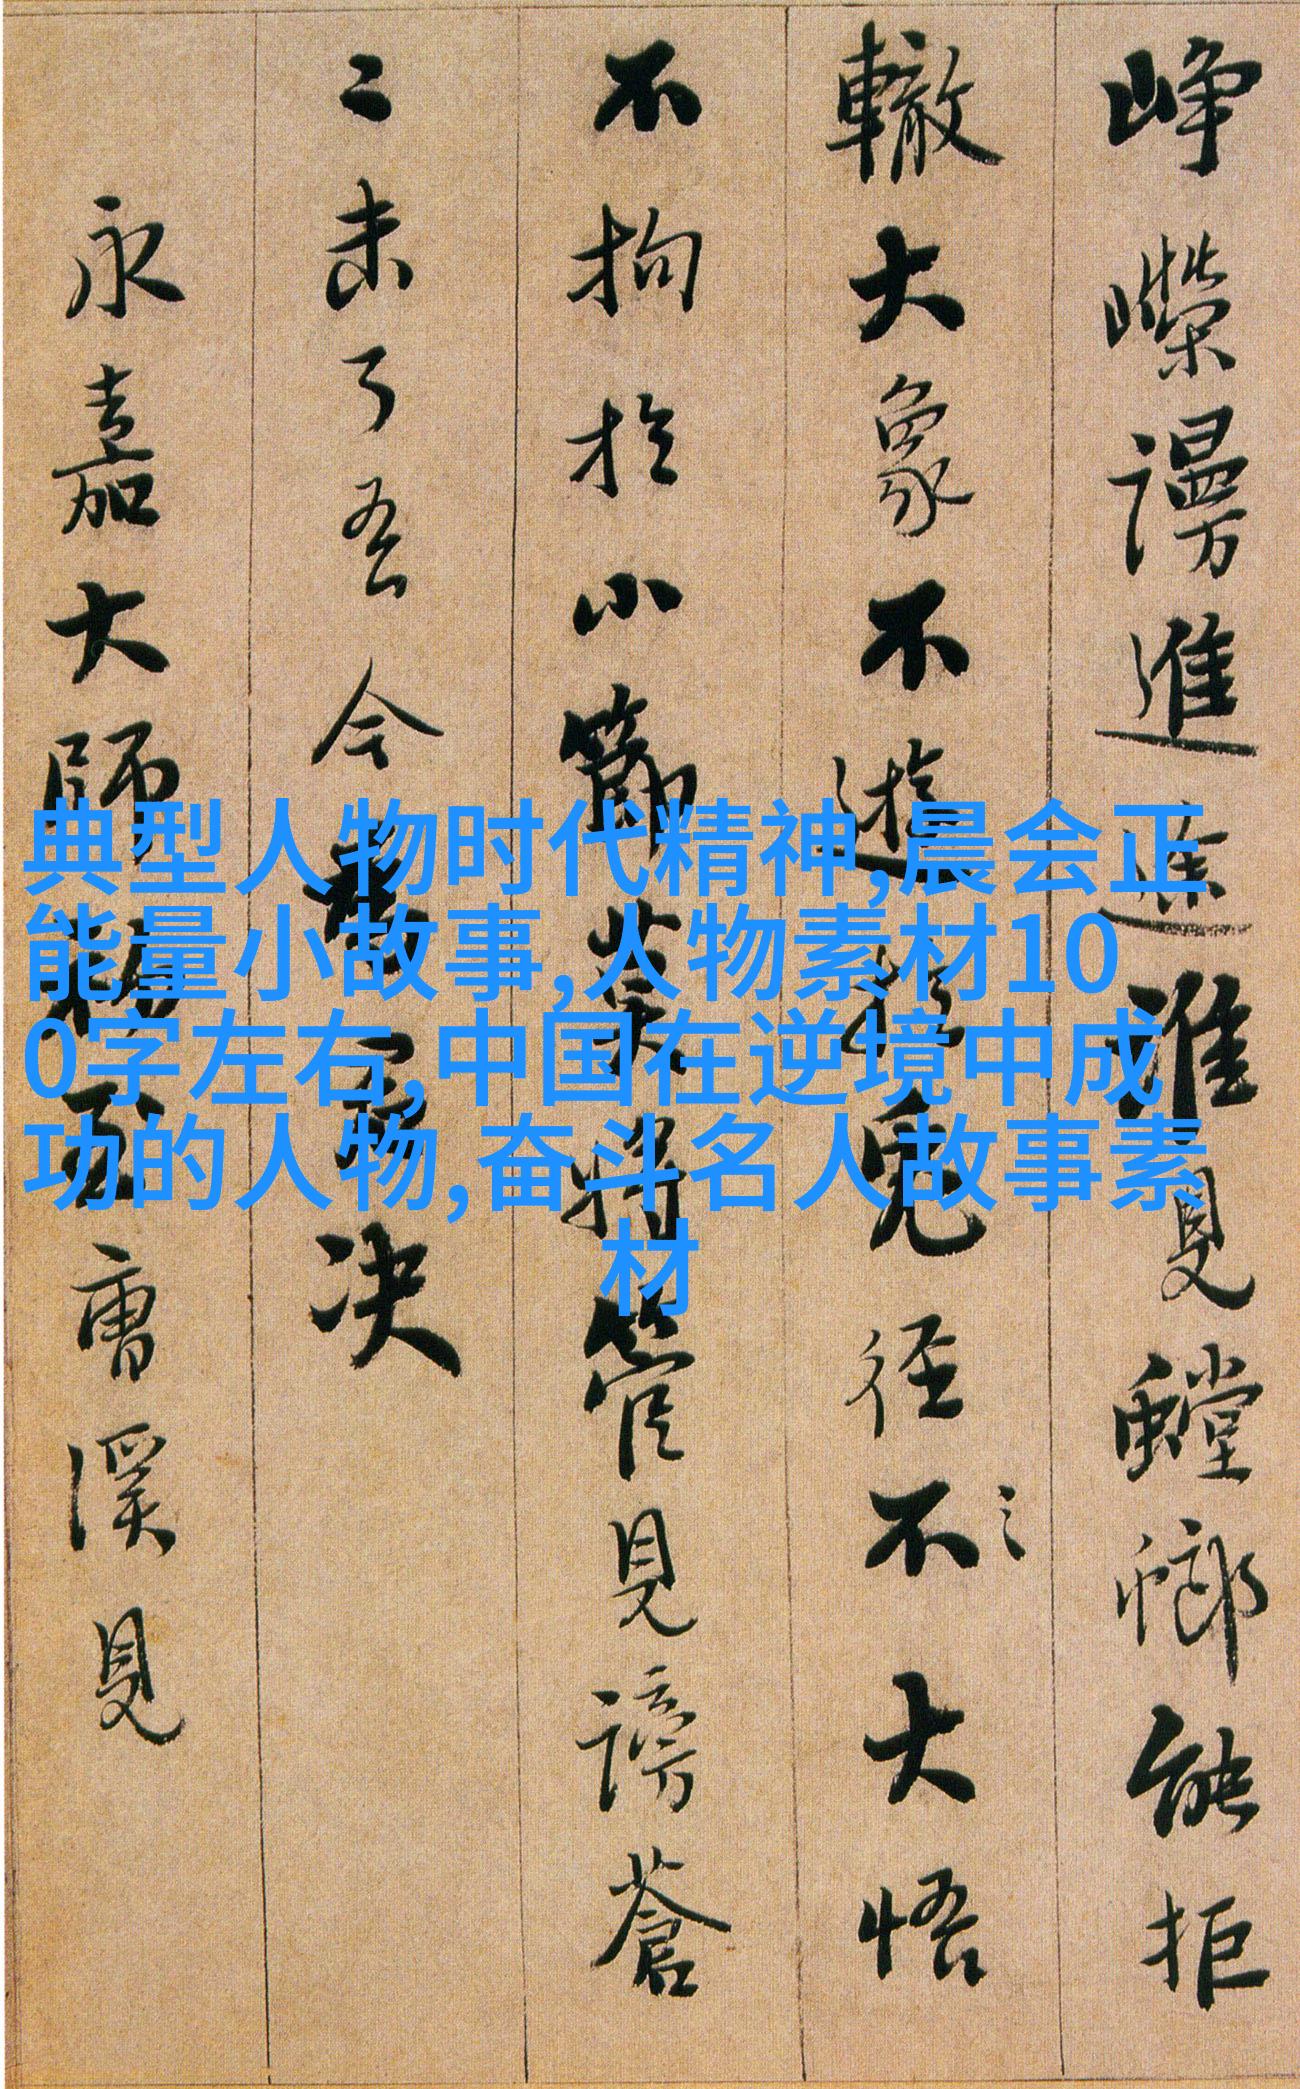 崢嶸謾進途誰見螳螂能拒
轍大象不遊於兔徑不大悟
不拘於小節莫將管見謗蒼
〻未了吾今君決
永嘉大師曹溪見
典型人物时代精神,晨会正
能量小故事,人物素材10
0字左右,中国在逆境中成
功的人物,奋斗名人故事素
材